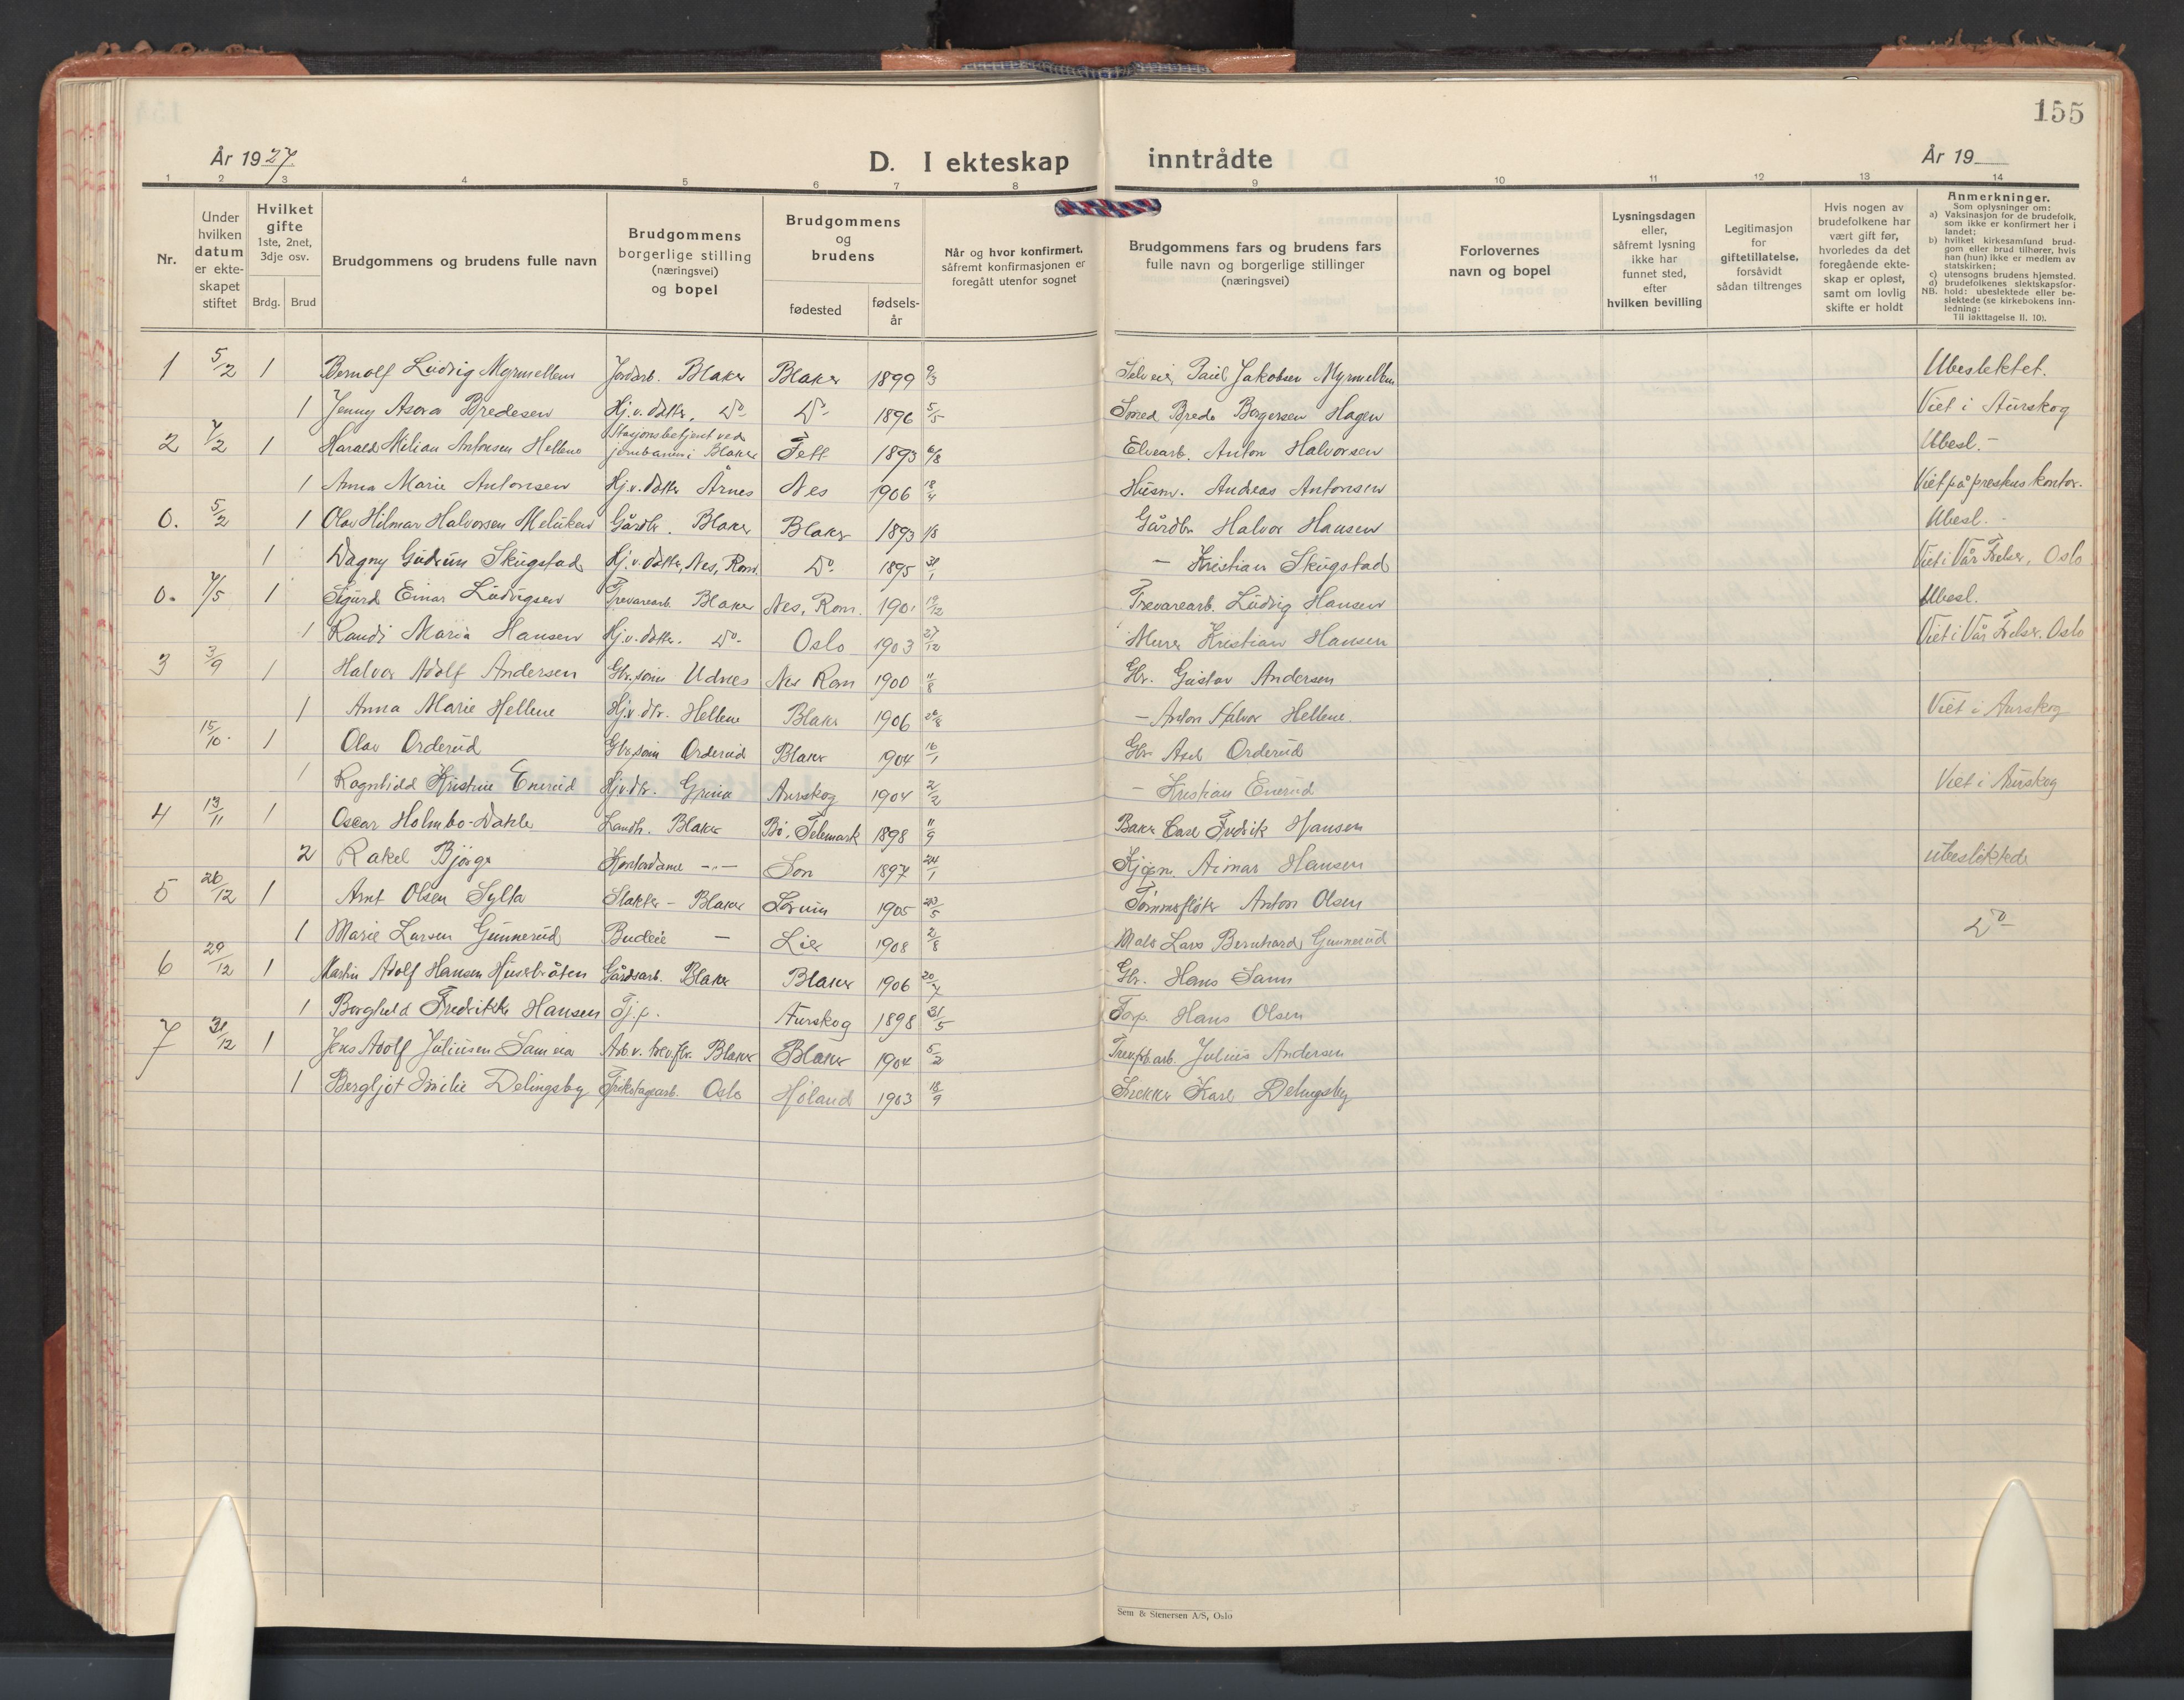 155
År 1927.
D. I ekteskap inntrådte
År 19
1 2 3 4 5 6 7 8 9 10 11 12 13 14
Nr.
Under hvilken datum er ekteskapet stiftet
Hvilket gifte 1ste, 2net, 3dje osv.
Brdg. Brud
Brudgommens og brudens fulle navn
Brudgommens borgerlige stilling (næringsvei) og bopel
Brudgommens og brudens
fødested
fødselsår
Når og hvor konfirmert, såfremt konfirmasjonen er foregått utenfor sognet
Brudgommens fars og brudens fars fulle navn og borgerlige stillinger (næringsvei)
Forlovernes navn og bopel
Lysningsdagen eller, såfremt lysning ikke har funnet sted, efter hvilken bevilling
Legitimasjon for giftetillatelse, forsåvidt sådan tiltrenges
Hvis nogen av brudefolkene har vært gift før, hvorledes da det foregående ekteskap er opløst, samt om lovlig skifte er holdt
Anmerkninger.
Som oplysninger om:
a) Vaksinasjon for de brudefolk, som ikke er konfirmert her i landet;
b) hvilket kirkesamfund brudgom eller brud tilhører, hvis han (hun) ikke er medlem av statskirken;
c) utensogns brudens hjemsted.
d) brudefolkenes slektskapsforhold: ubeslektede eller beslektede (se kirkebokens innledning:
NB.
Til iakttagelse II. 10).
1 5/2 1 Bernolf Ludvig Myrmellem Jordarb. Blaker Blaker 1899 9/3 Selveier Paul Jakobsen Myrmellem Ubeslektet.
1 Jenny Asora Bredesen Hj.v. datter. Do- Do- 1896 5/5 Smed Brede Borgersen Hagen Viet i Aurskog
2 7/2 1 Harald Milian Antonsen Hellene Stasjonsbetjent ved jernbanen i Blaker Fett 1893 6/8 Elvearb. Anton Halvorsen Ubesl.-
1 Anna Marie Antonsen Hj.v. datter Årnes Nes 1906 18/4 Husm. Andreas Antonsen Viet på prestens kontor.
0. 5/2 1 Olav Hilmar Halvorsen Meluken Gårdbr. Blaker Blaker 1893 1/8 Gårdbr. Halvor Hansen Ubesl.-
1 Dagny Gudrun Skugstad Hj.v. datter, Nes, Rom. Do. 1895 31/1 - Kristian Skugstad Viet i Vår Frelser, Oslo
0. 7/5 1 Sigurd Einar Ludvigsen Trevarearb. Blaker Nes, Rom. 1901 19/12 Trevarearb. Ludvig Hansen Ubesl.
1 Randi Maria Hansen Hj.v. datter. Do- Oslo 1903 27/12 Murer Kristian Hansen Viet i Vår Frelser. Oslo
3 3/9 1 Halvor Adolf Andersen Gbr. sønn Udnes Nes Rom 1900 11/8 Gbr. Gustav Andersen
1 Anna Marie Hellene Hj.v. dtr. Hellene Blaker 1906 26/8 - Anton Halvor Hellene. Viet i Aurskog
15/10. 1 Olav Orderud Gbr. sønn Orderud Blaker 1904 16/1 Gbr. Axel Orderud
1 Ragnhild Kristine Enerud Hj.v.dtr. Grina Aurskog 1904 2/2 - Kristian Enerud Viet i Aurskog
4 13/11 1 Oscar Holmbo-Dahle Landh. Blaker Bø, Telemark 1898 11/9 Baker Carl Fredrik Hansen
2 Rakel Bjørge Kontordame -"- Son 1897 24/1 Kjøpm. Aimar Hansen ubeslektede
5 26/12 1 Arnt Olsen Sylta Slakter - Blaker Sørum 1905 23/5 Tømmerfløter Anton Olsen
1 Marie Larsen Gunnerud Budeie - Lier 1908 2/8 Maler Lars Bernhard Gunnerud Do-
6 29/12 1 Martin Adolf Hansen Husebråten Gårdsarb. Blaker Blaker 1906 20/7 Gbr. Hans Sann
1 Borghild Fredrikke Hansen Tj.p. Aurskog 1898 31/5 Torp. Hans Olsen
7 31/12 1 Jens Adolf Juliusen Sameia Arb.v. trev.fbr. Blaker Blaker 1904 5/2 Trev.fb.arb. Julius Andersen
1 Bergljot Emilie Delingsby Trikotagearb. Oslo Høland 1903 18/9 Snekker Karl Delingsby
Sem & Stenersen A/S, Oslo